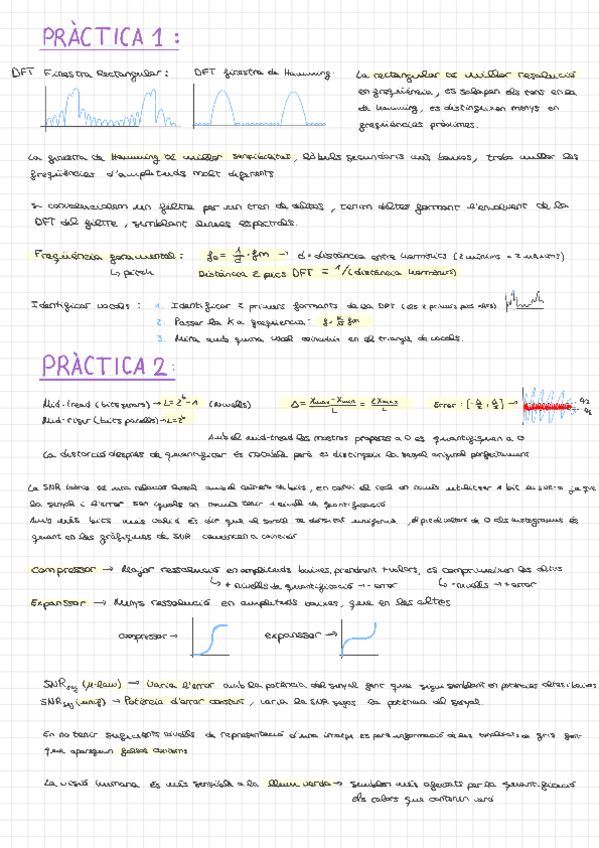 PRÀCTICA 1 :
DFT Finestra Rectangular :
DFT finestra de Hamming:
La rectangular té millor resolució
en freqüència, es solapen els tons en la
de Hamming, es distingeixen menys en
freqüències pròximes.
La finestra de Hamming té millor sensibilitat, lòbuls secundaris més baixos, troba millor les
freqüències d'amplituds molt diferents
Si convolucionem un filtre per un tren de deltes, tenim deltes formant l'envolvent de la
DFT del filtre, semblant línies espectrals.
Freqüència fonamental : f₀ = 1/d · fm → d = distància entre harmònics (2 mínims = 2 màxims)
↳ pitch
Distància 2 pics DFT = 1/(distància harmònics)
Identificar vocals :
1. Identificar 2 primers formants de la DFT (els 2 primers pics alts)
2. Passar la K a freqüència : f = K/N fm
3. Mira amb quina vocal coincideix en el triangle de vocals.
PRÀCTICA 2:
Mid-tread (bits senars) → L = 2^b - 1 (nivells)
Δ = (Xmax - Xmin)/L = 2Xmax/L
Error : [-Δ/2 , Δ/2] →
Mid-riser (bits parells) → L = 2^b
Amb el mid-tread les mostres properes a 0 es quantifiquen a 0
La distorsió després de quantificar és notable però es distingeix la senyal original perfectament
La SNR té una relació lineal amb el número de bits, en canvi el cas on només utilitzem 1 bit la SNR=0 ja que
la senyal i l'error són iguals en només tenir 1 nivell de quantificació
Amb més bits més vàlid és dir que el soroll té densitat uniforme, el predomini de 0 als histogrames és
quan en les gràfiques de SNR comencen a coincidir
Compressor → Major ressolució en amplituds baixes, prendran + valors, es comprimeixen les altes
↳ + nivells de quantificació → - error
↳ - nivells → + error
Expanssor → Menys ressolució en amplituds baixes, que en les altres
compressor →
expanssor →
SNRseg (μ-law) → Varia l'error amb la potència del senyal fent que sigui semblant en potències altes i baixes
SNRseg (unif) → Potència d'error constant, varia la SNR segons la potència del senyal.
En no tenir suficients nivells de representació d'una imatge es perd informació de les tonalitats de gris fent
que apareguin falsos contorns
La visió humana és més sensible a la llum verda → semblen més afectats per la quantificació
els colors que contenen verd